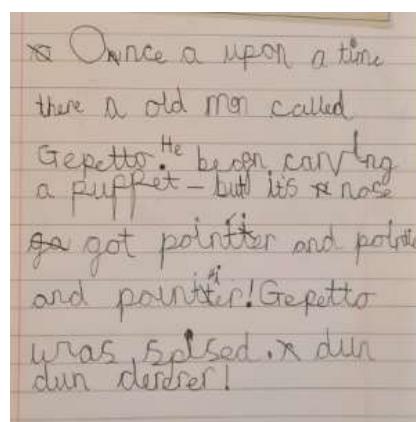 Onnce a upon a time
there a old man called
Gepetto. He began carving
a puppet - but it's nose
got pointier and
and pointier! Gepetto
was spised. dun
dun derdrer!